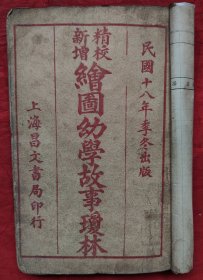 民國十八年季冬出版
精校
新增
繪圖幼學故事瓊林
上海昌文書局印行